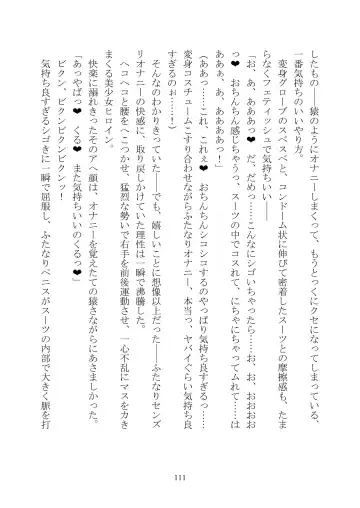 したもの――猿のようにオナニーしまくって、もうとっくにクセになってしまっている、
一番気持ちのいいやり方。
変身グローブのスベスベと、コンドーム状に伸びて密着したスーツとの摩擦感も、たま
らなくフェティッシュで気持ちいい――
「お、あ、あああっ❤ だ、だめっ……こんなにシゴいちゃったら――お、お、おおおお
っ❤ おちんちん感じちゃうっ、スーツの中でコスれて、にちゃにちゃってムレて――は
ああぁ、あ、ああああっ！」
（ああっ……これ、これぇ❤ おちんちんシコシコするのやっぱり気持ち良すぎるっ……
変身コスチュームこすり合わせながらふたなりオナニー、本当っ、ヤバイぐらい気持ち良
すぎるのぉ……！）
そんなのわかりきっていた――でも、嬉しいことに想像以上だった――ふたなりセンズ
リオナニーの快感に、取り戻しかけていた理性は一瞬で沸騰した。
ヘコヘコと腰をへこつかせ、猛烈な勢いで右手を前後運動させ、一心不乱にマスをかき
まくる美少女ヒロイン。
快楽に溺れきったそのアヘ顔は、オナニーを覚えたての猿さながらにあさましかった。
「あっやばっ❤ くる❤ また気持ちいいのくるっ❤」
ビクン、ビクンビクンビクンッ！
気持ち良すぎるシゴきに一瞬で屈服し、ふたなりペニスがスーツの内部で大きく脈を打
111